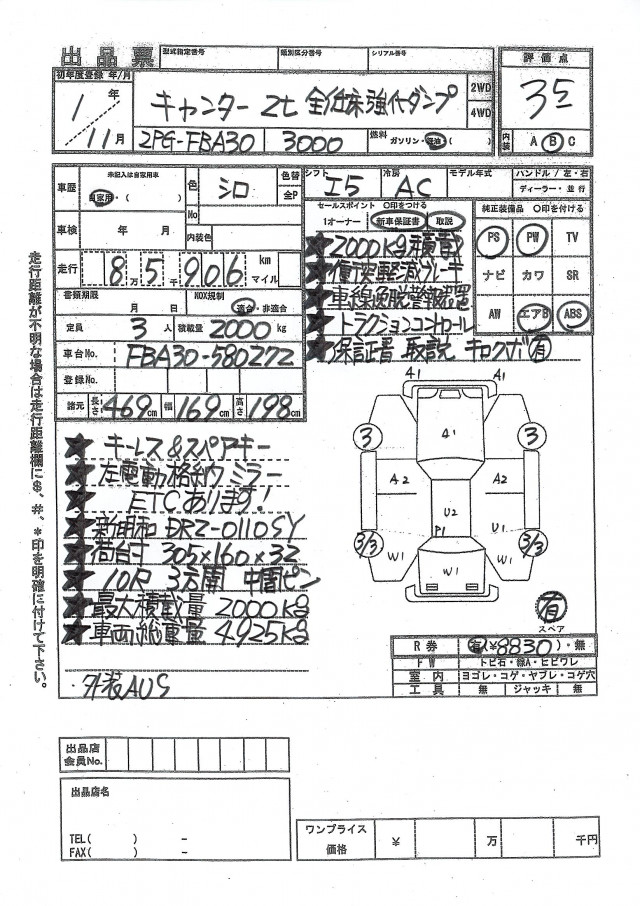 出品票
型式指定番号 類別区分番号 シリアル番号
初年度登録 年/月
1年/11月
キャンター 2t 全低床強化ダンプ
2WD
4WD
2PG-FBA30 3000 燃料 ガソリン・軽油( )
評価点
3.5
内装 A B C
車歴 未記入は自家用車 自家用・( )
色 シロ 色替 全P
No
車検 年 月 内装色
走行 8万5千906 km マイル
書類期限 月 日 NOX規制 適合・非適合
定員 3人 積載量 2000 kg
車台No. FBA30-580272
登録No.
諸元 長さ 469cm 幅 169cm 高さ 198cm
シフト I5 冷房 AC モデル年式 ハンドル/左・右
ディーラー・並行
セールスポイント ○印をつける
1オーナー 新車保証書 取説
★2000kg積載
★衝突軽減ブレーキ
★車線逸脱警報装置
★トラクションコントロール
★保証書 取説 キロクボ 有
純正装備品 ○印を付ける
PS PW TV
ナビ カワ SR
AW エアB ABS
★キーレス&スペアキー
★左電動格納ミラー
★ETCあります!
★新明和 DRZ-0110SY
★荷台寸 305×160×32
★10尺 3方開 中間ピン
★最大積載量 2000kg
★車両総重量 4925kg
外装AUS
A1 A1
3 A1 3
A2 A2
U2
P1 U1
3/3 3/3
W1 W1 W1
有
スペア
R券 有(¥8830)・無
FW トビ石・線A・ヒビワレ
室内 ヨゴレ・コゲ・ヤブレ・コゲ穴
工具 無 ジャッキ 無
走行距離が不明な場合は走行距離欄に$、#、*印を明確に付けて下さい。
出品店
会員No.
出品店名
TEL( ) -
FAX( ) -
ワンプライス
価格 ¥ 万 千円